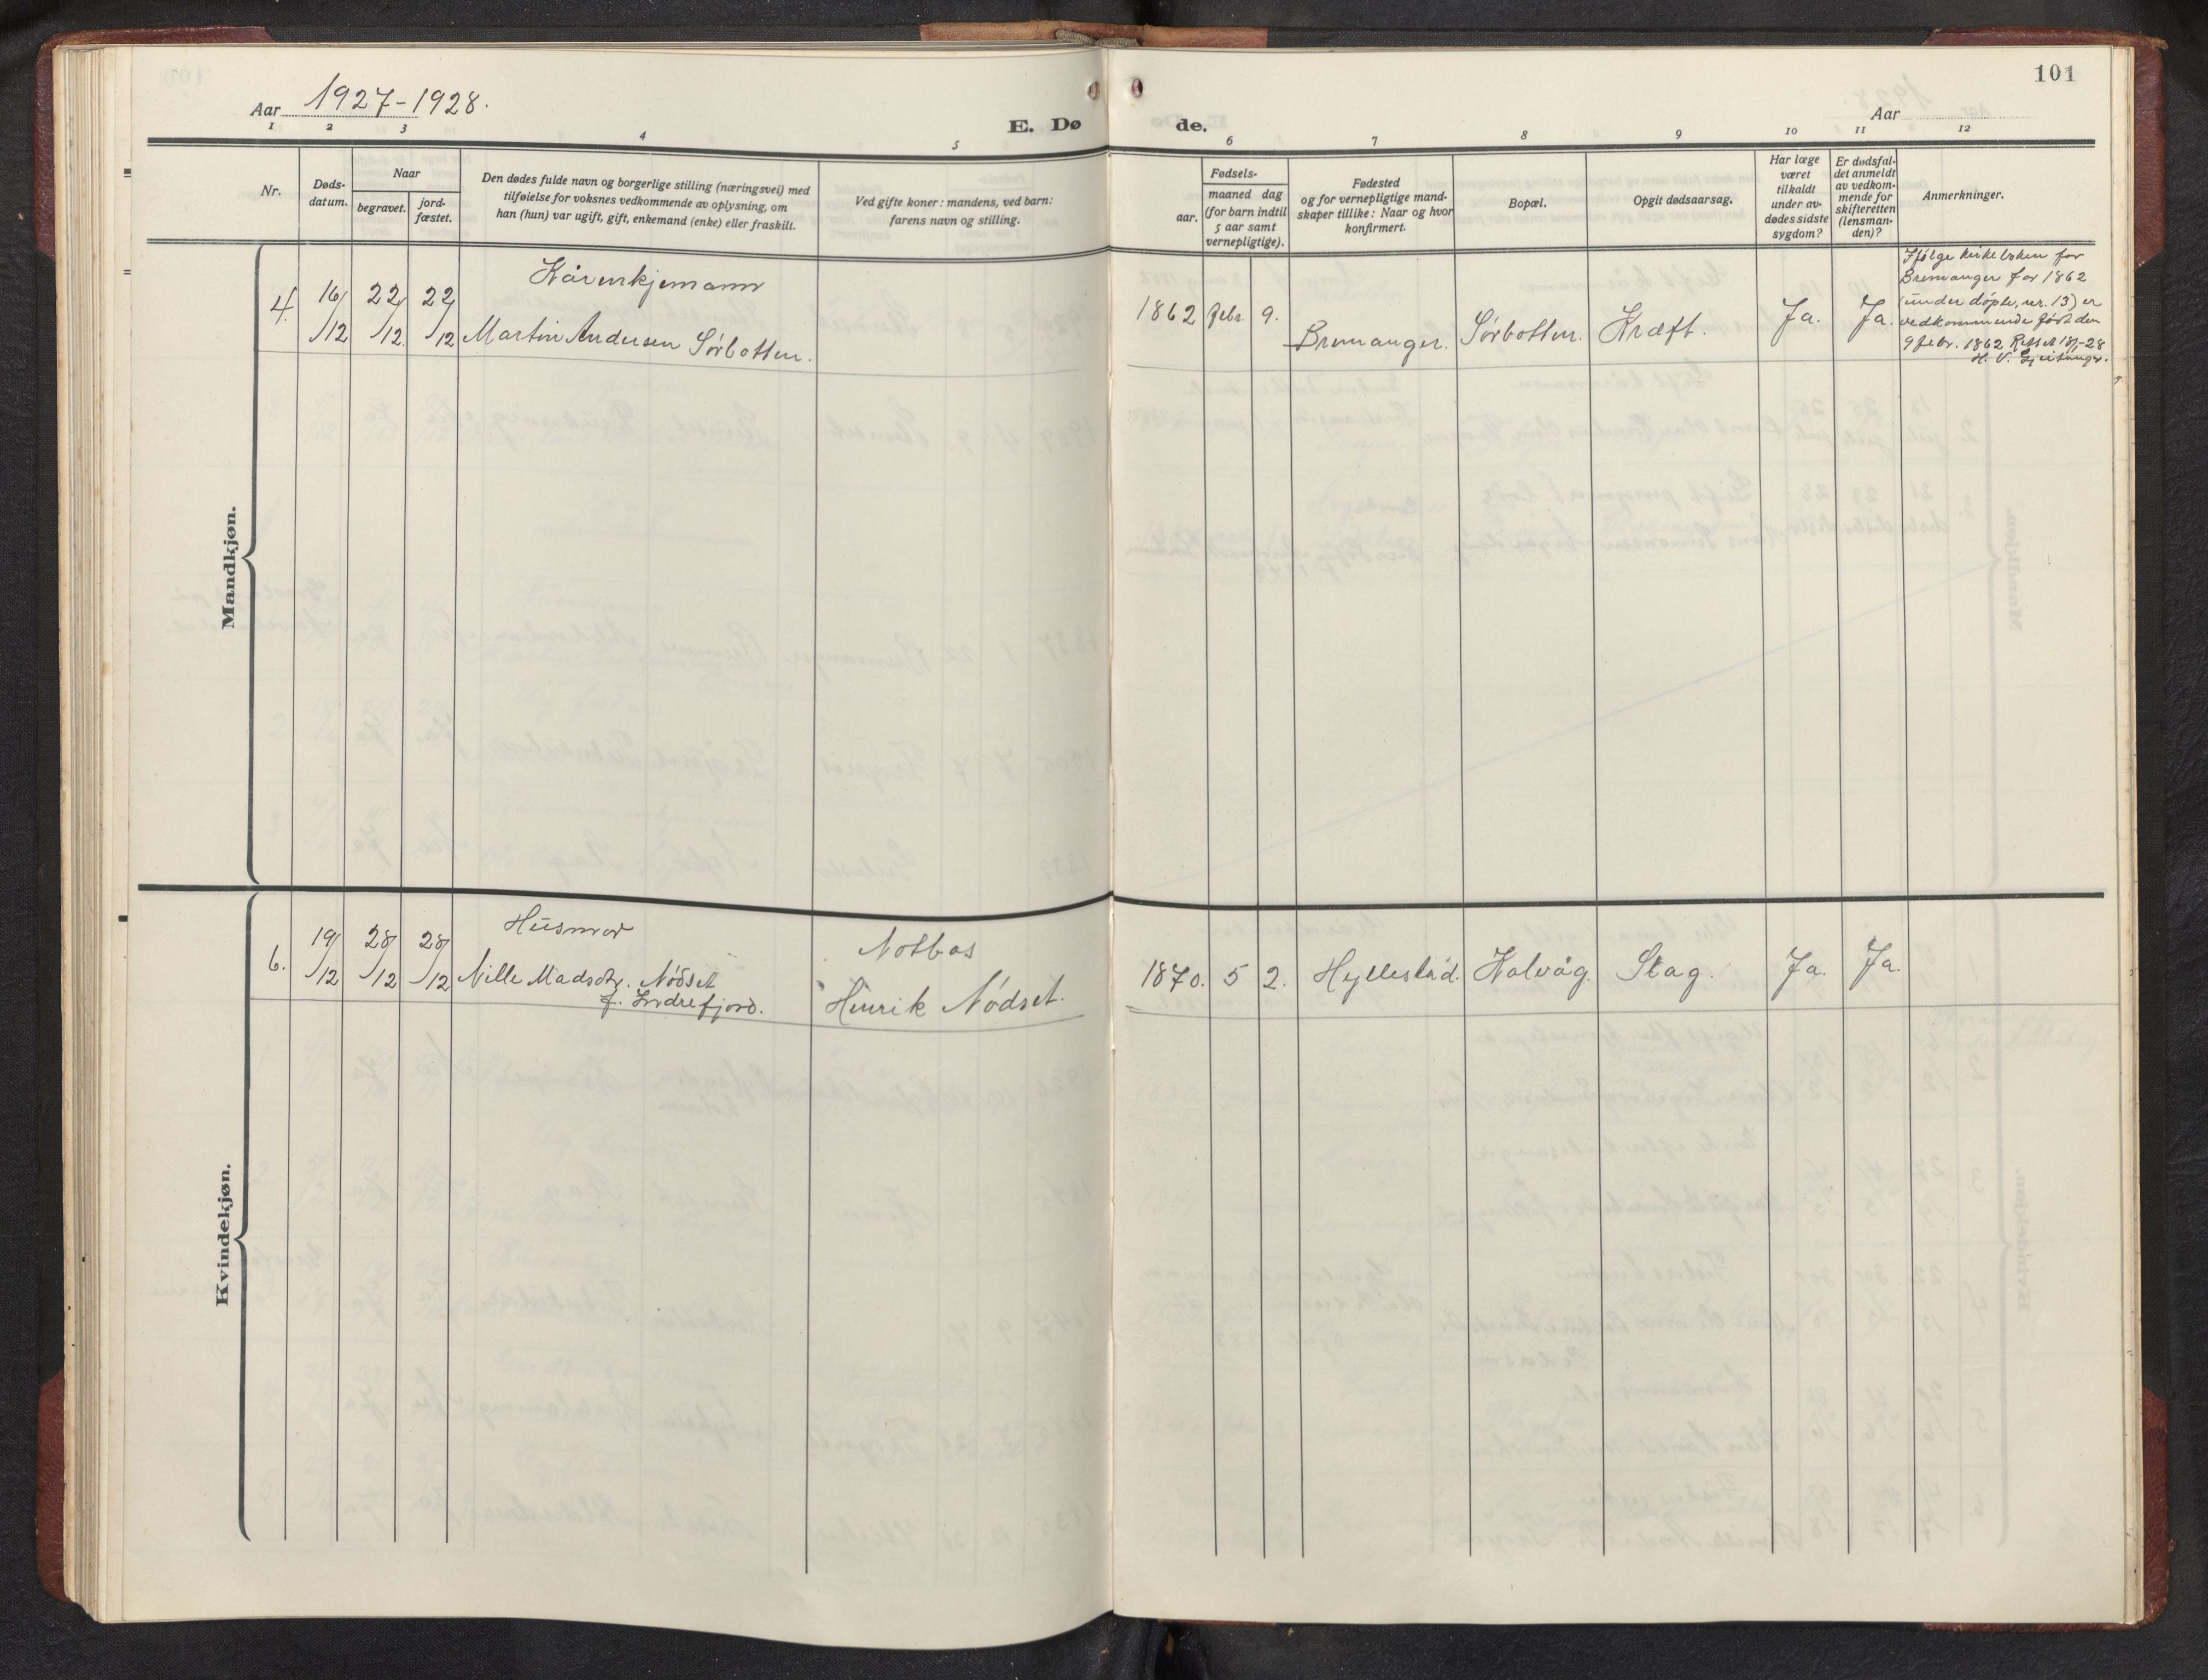 101
Aar 1927-1928.
Aar
E. Dø de.
1 2 3 4 5 6 7 8 9 10 11 12
Nr.
Døds-
datum.
Naar
begravet.
jord-
fæstet.
Den dødes fulde navn og borgerlige stilling (næringsvei) med
tilføielse for voksnes vedkommende av oplysning, om
han (hun) var ugift, gift, enkemand (enke) eller fraskilt.
Ved gifte koner: mandens, ved barn:
farens navn og stilling.
Fødsels-
aar.
maaned dag
(for barn indtil
5 aar samt
vernepligtige).
Fødested
og for vernepligtige mand-
skaper tillike: Naar og hvor
konfirmert.
Bopæl.
Opgit dødsaarsag.
Har læge
været
tilkaldt
under av-
dødes sidste
sygdom?
Er dødsfal-
det anmeldt
av vedkom-
mende for
skifteretten
(lensman-
den)?
Anmerkninger.
Mandkjøn.
4. 16/12 22/12. 22/12
Kårenskjemann
Martin Andersen Sørbotten.
1862 Febr. 9. Bremanger. Sørbotten. Kræft. Ja. Ja.
Ifølge kirkeboken for
Bremanger for 1862
(under døpte, nr. 13) er
vedkommende født den
9 febr. 1862
Kvindekjøn.
6. 19/12 28/12 28/12
Husmor
Nille Madsdtr. Nødset
f. Indrefjord.
Notbas
Henrik Nødset.
1870. 5 2. Hyllestad. Kalvåg. Slag. Ja. Ja.